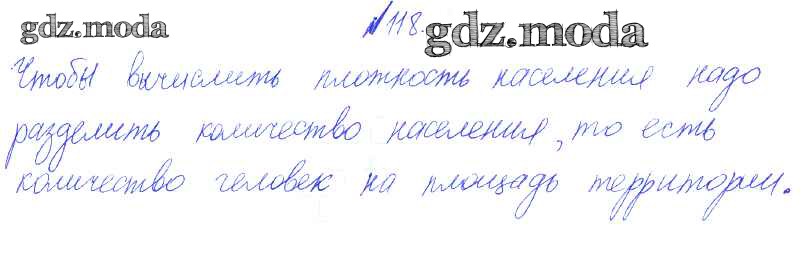 gdz.moda №118. gdz.moda
Чтобы вычислить плотность населения надо
разделить количество населения, то есть
количество человек на площадь территории.